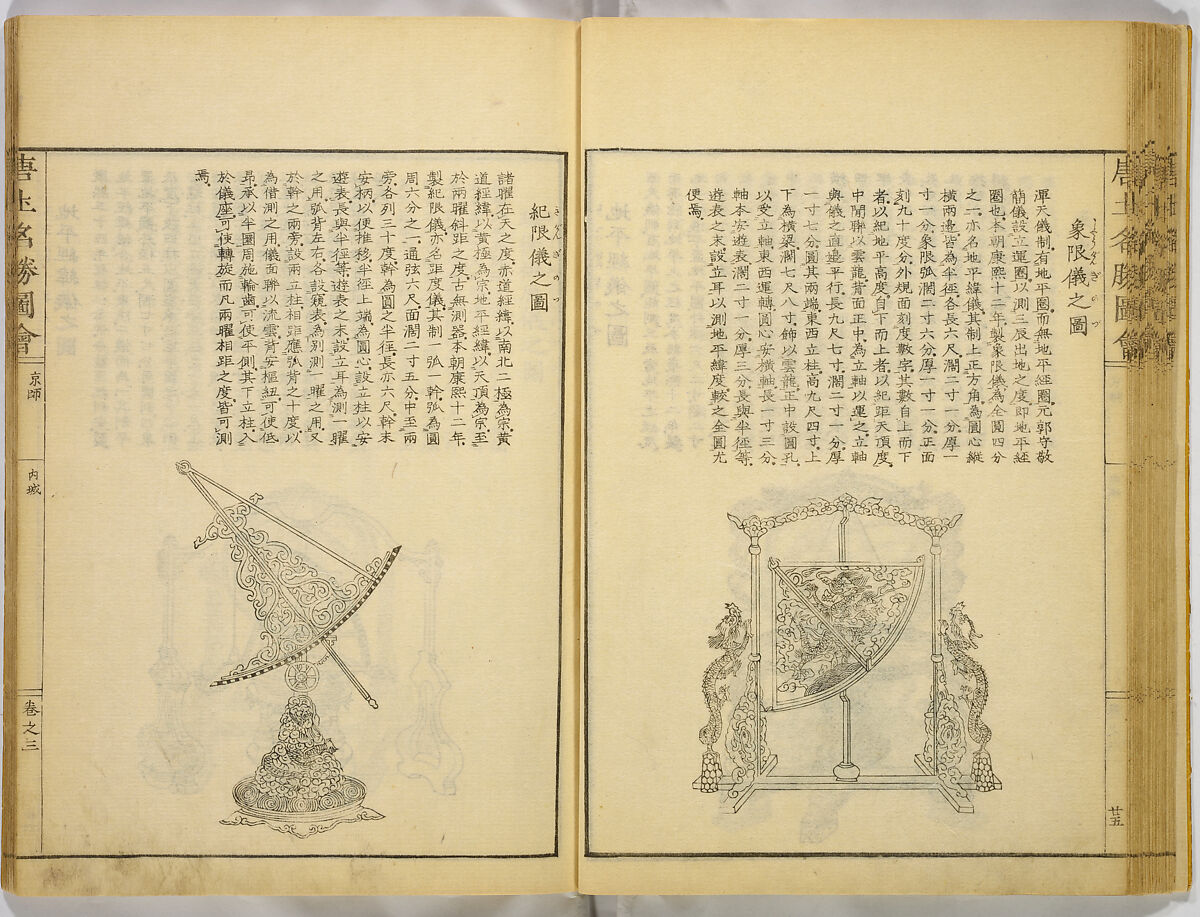 唐土名勝圖會
廿五
象限儀之圖
渾天儀制有地平圈而無地平經圈元郭守敬
簡儀設立運圈以測三辰出地之度即地平經
圈也本朝康熙十二年製象限儀為全圓四分
之一亦名地平緯儀其制上正方角為圓心縱
橫兩邊皆為半徑各長六尺濶二寸一分厚一
寸一分象限弧濶二寸六分厚一寸一分正面
刻九十度分外規面刻度數字其數自上而下
者以紀地平高度自下而上者以紀距天頂度
中間聯以雲龍背面正中為立軸以運之立軸
與儀之直邊平行長九尺七寸濶二寸一分厚
一寸七分圓其兩端東西立柱高九尺四寸上
下為橫梁濶七尺八寸飾以雲龍正中設圓孔
以受立軸東西運轉圓心安橫軸長一寸三分
軸本安遊表濶二寸一分厚三分長與半徑等
遊表之末設立耳以測地平緯度較之全圓尤
便焉
きげんぎのづ
紀限儀之圖
諸曜在天之度赤道經緯以南北二極為宗黃
道經緯以黃極為宗地平經緯以天頂為宗至
於兩曜斜距之度古無測器本朝康熙十二年
製紀限儀亦名距度儀其制一弧一幹弧為圓
周六分之一通弦六尺面濶二寸五分中至兩
旁各列三十度幹為圓之半徑長亦六尺幹末
安柄以便推移半徑上端為圓心設立柱以安
遊表長與半徑等遊表之末設立耳為測一曜
之用弧背左右各設窺表為别測一曜之用又
於幹之兩旁設兩立柱相距應弧背之十度以
為借測之用儀面聯以流雲背安樞紐可使低
昂承以半圈周施輪齒可使平側其下立柱入
於儀座可使轉旋而凡兩曜相距之度皆可測
焉
唐土名勝圖會
京師
内城
卷之三